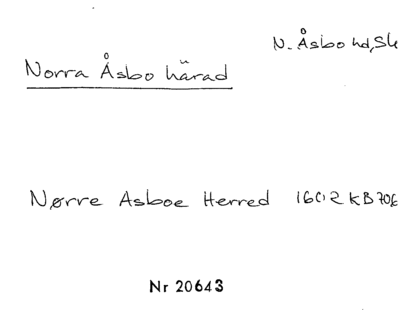 N. Åsbo hd, Sk
Norra Åsbo härad
Nørre Asboe Herred 1602 KB 70
Nr 20643